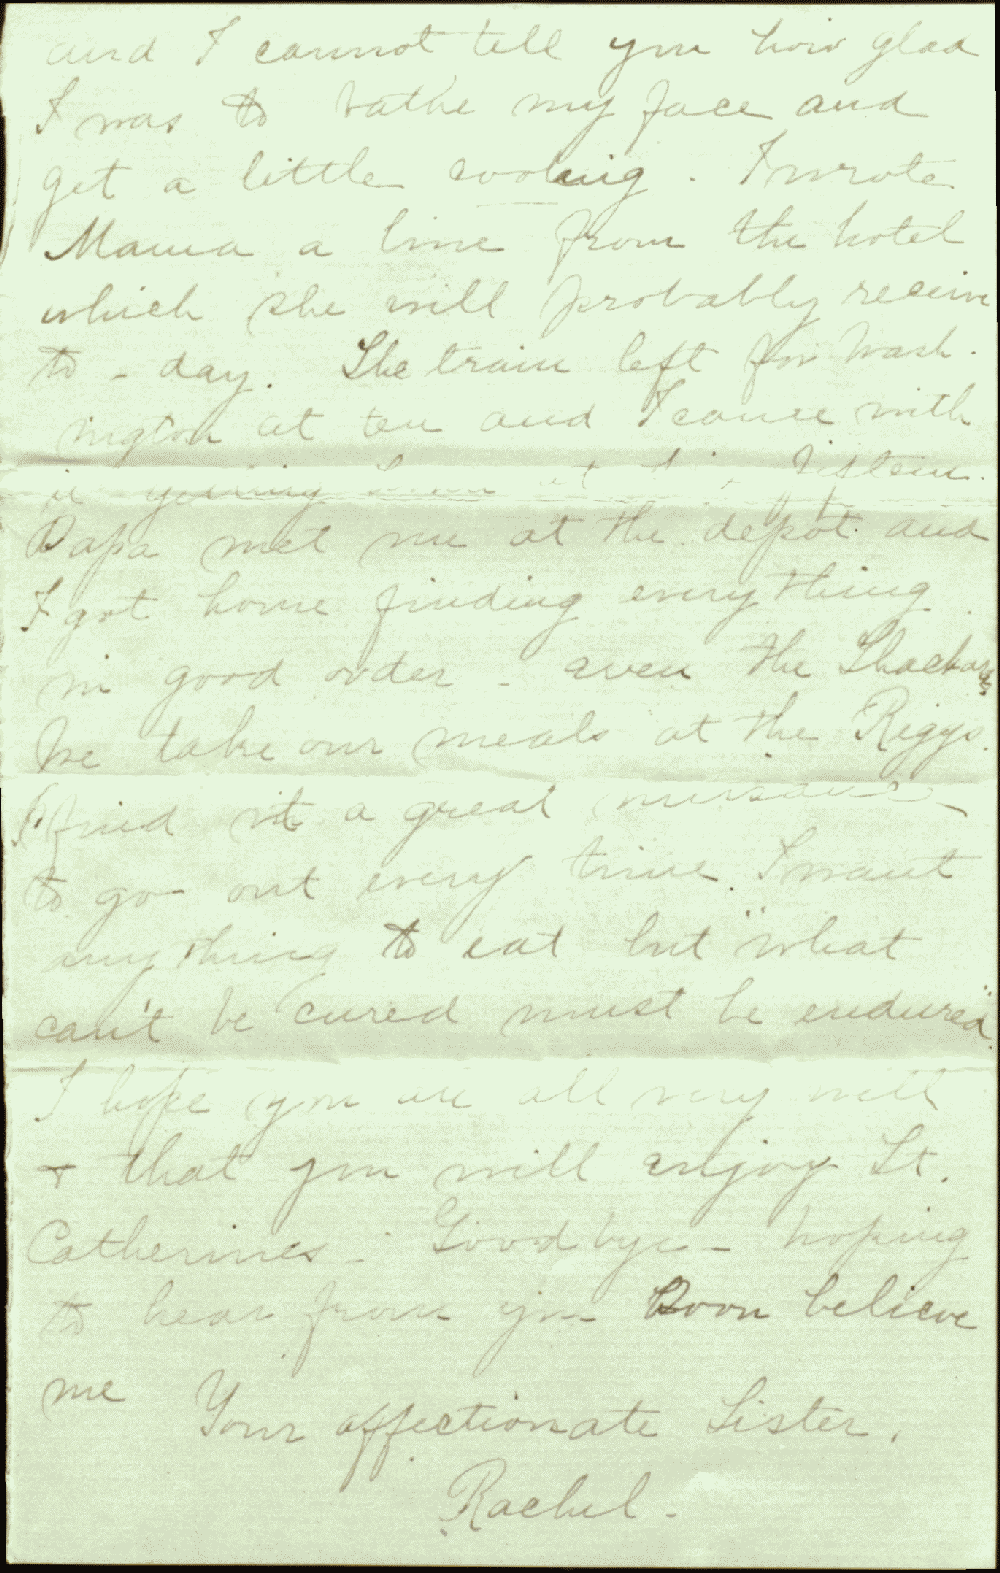 and I cannot tell you how glad
I was to bathe my face and
get a little cooling. I wrote
Mama a line from the hotel
which she will probably receive
to-day. The train left for Wash-
ington at ten and I came with
it
Papa met me at the depot and
I got home finding everything
in good order - even the
We take our meals at the Riggs.
I find it a great nuisance
to go out every time I want
anything to eat but "what
can't be cured must be endured".
I hope you are all very well
+ that you will enjoy St.
Catherines - Goodbye - hoping
to hear from you soon believe
me
Your affectionate Sister,
Rachel -